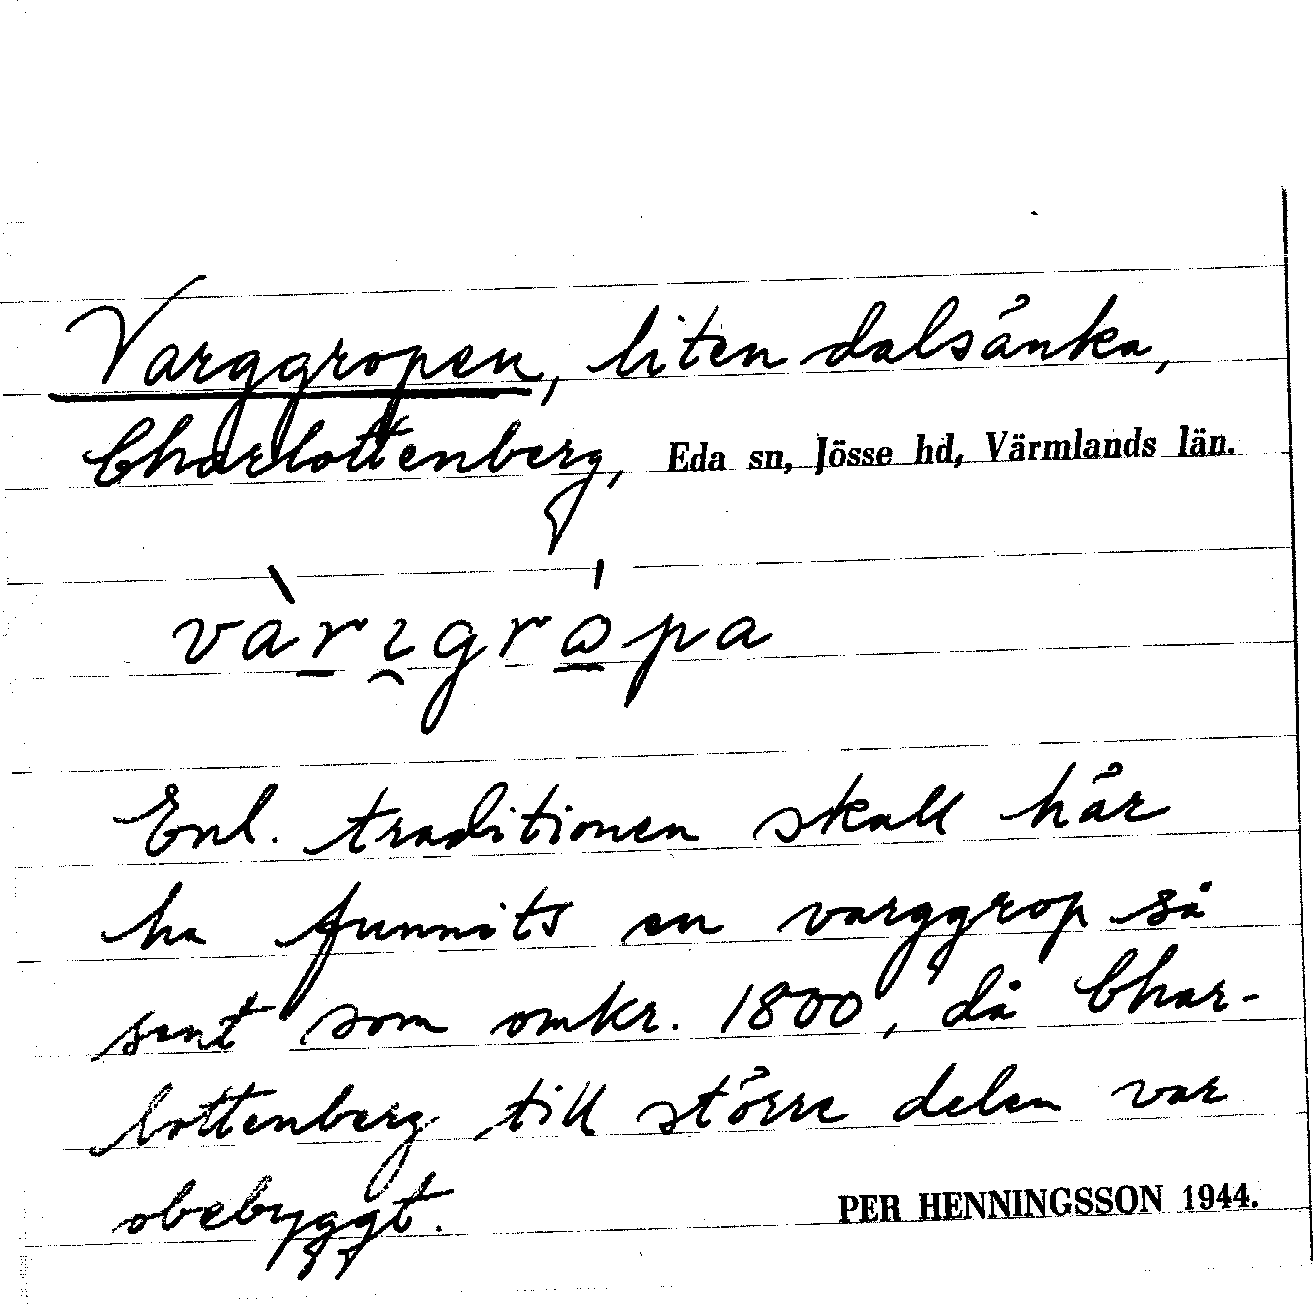 Varggropen, liten dalsänka,
Charlottenberg, Eda sn, Jösse hd, Värmlands län.
Enl. traditionen skall här
ha funnits en varggrop så
sent som omkr. 1800, då Char-
lottenberg till större delen var
obebyggt.
PER HENNINGSSON 1944.